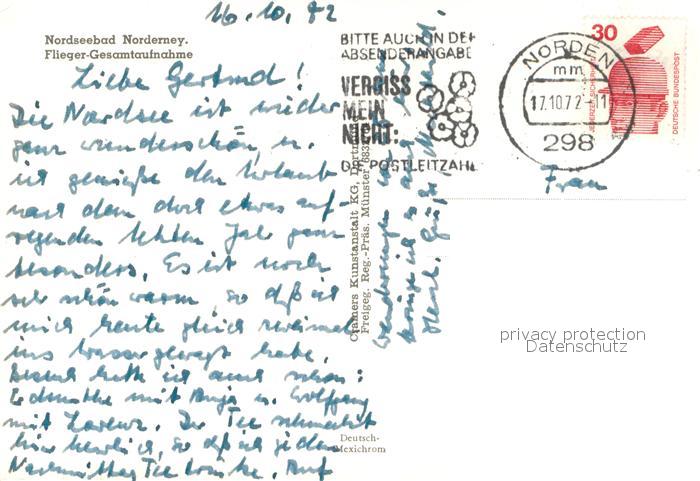 16.10.72
Nordseebad Norderney.
Flieger-Gesamtaufnahme
Liebe Gertrud!
Die Nordsee ist wieder
ganz wunderschön u.
ich genieße den Urlaub
nach dem doch etwas auf-
regenden letzten Jahr ganz
besonders. Es ist noch
sehr schön warm, so daß ich
mich heute gleich zweimal
ins Wasser gewagt habe.
Besuch hatte ich auch schon:
mit Anja u. Wolfgang
mit Lorenz. Der Tee schmeckt
hier herrlich, so daß ich jeden
Nachmittag Tee trinke. Auf
Wanderungen
bringe ich so
Herzl. Grüße
Cramers Kunstanstalt KG, Dortmund
Freigeg. Reg.-Präs. Münster
Deutsch-
Mexichrom
BITTE AUCH IN DER
ABSENDERANGABE
VERGISS
MEIN
NICHT:
DIE POSTLEITZAHL
NORDEN
mm
17.10.72-11
298
30
JEDERZEIT SICHERHEIT
DEUTSCHE BUNDESPOST
Frau
privacy protection
Datenschutz